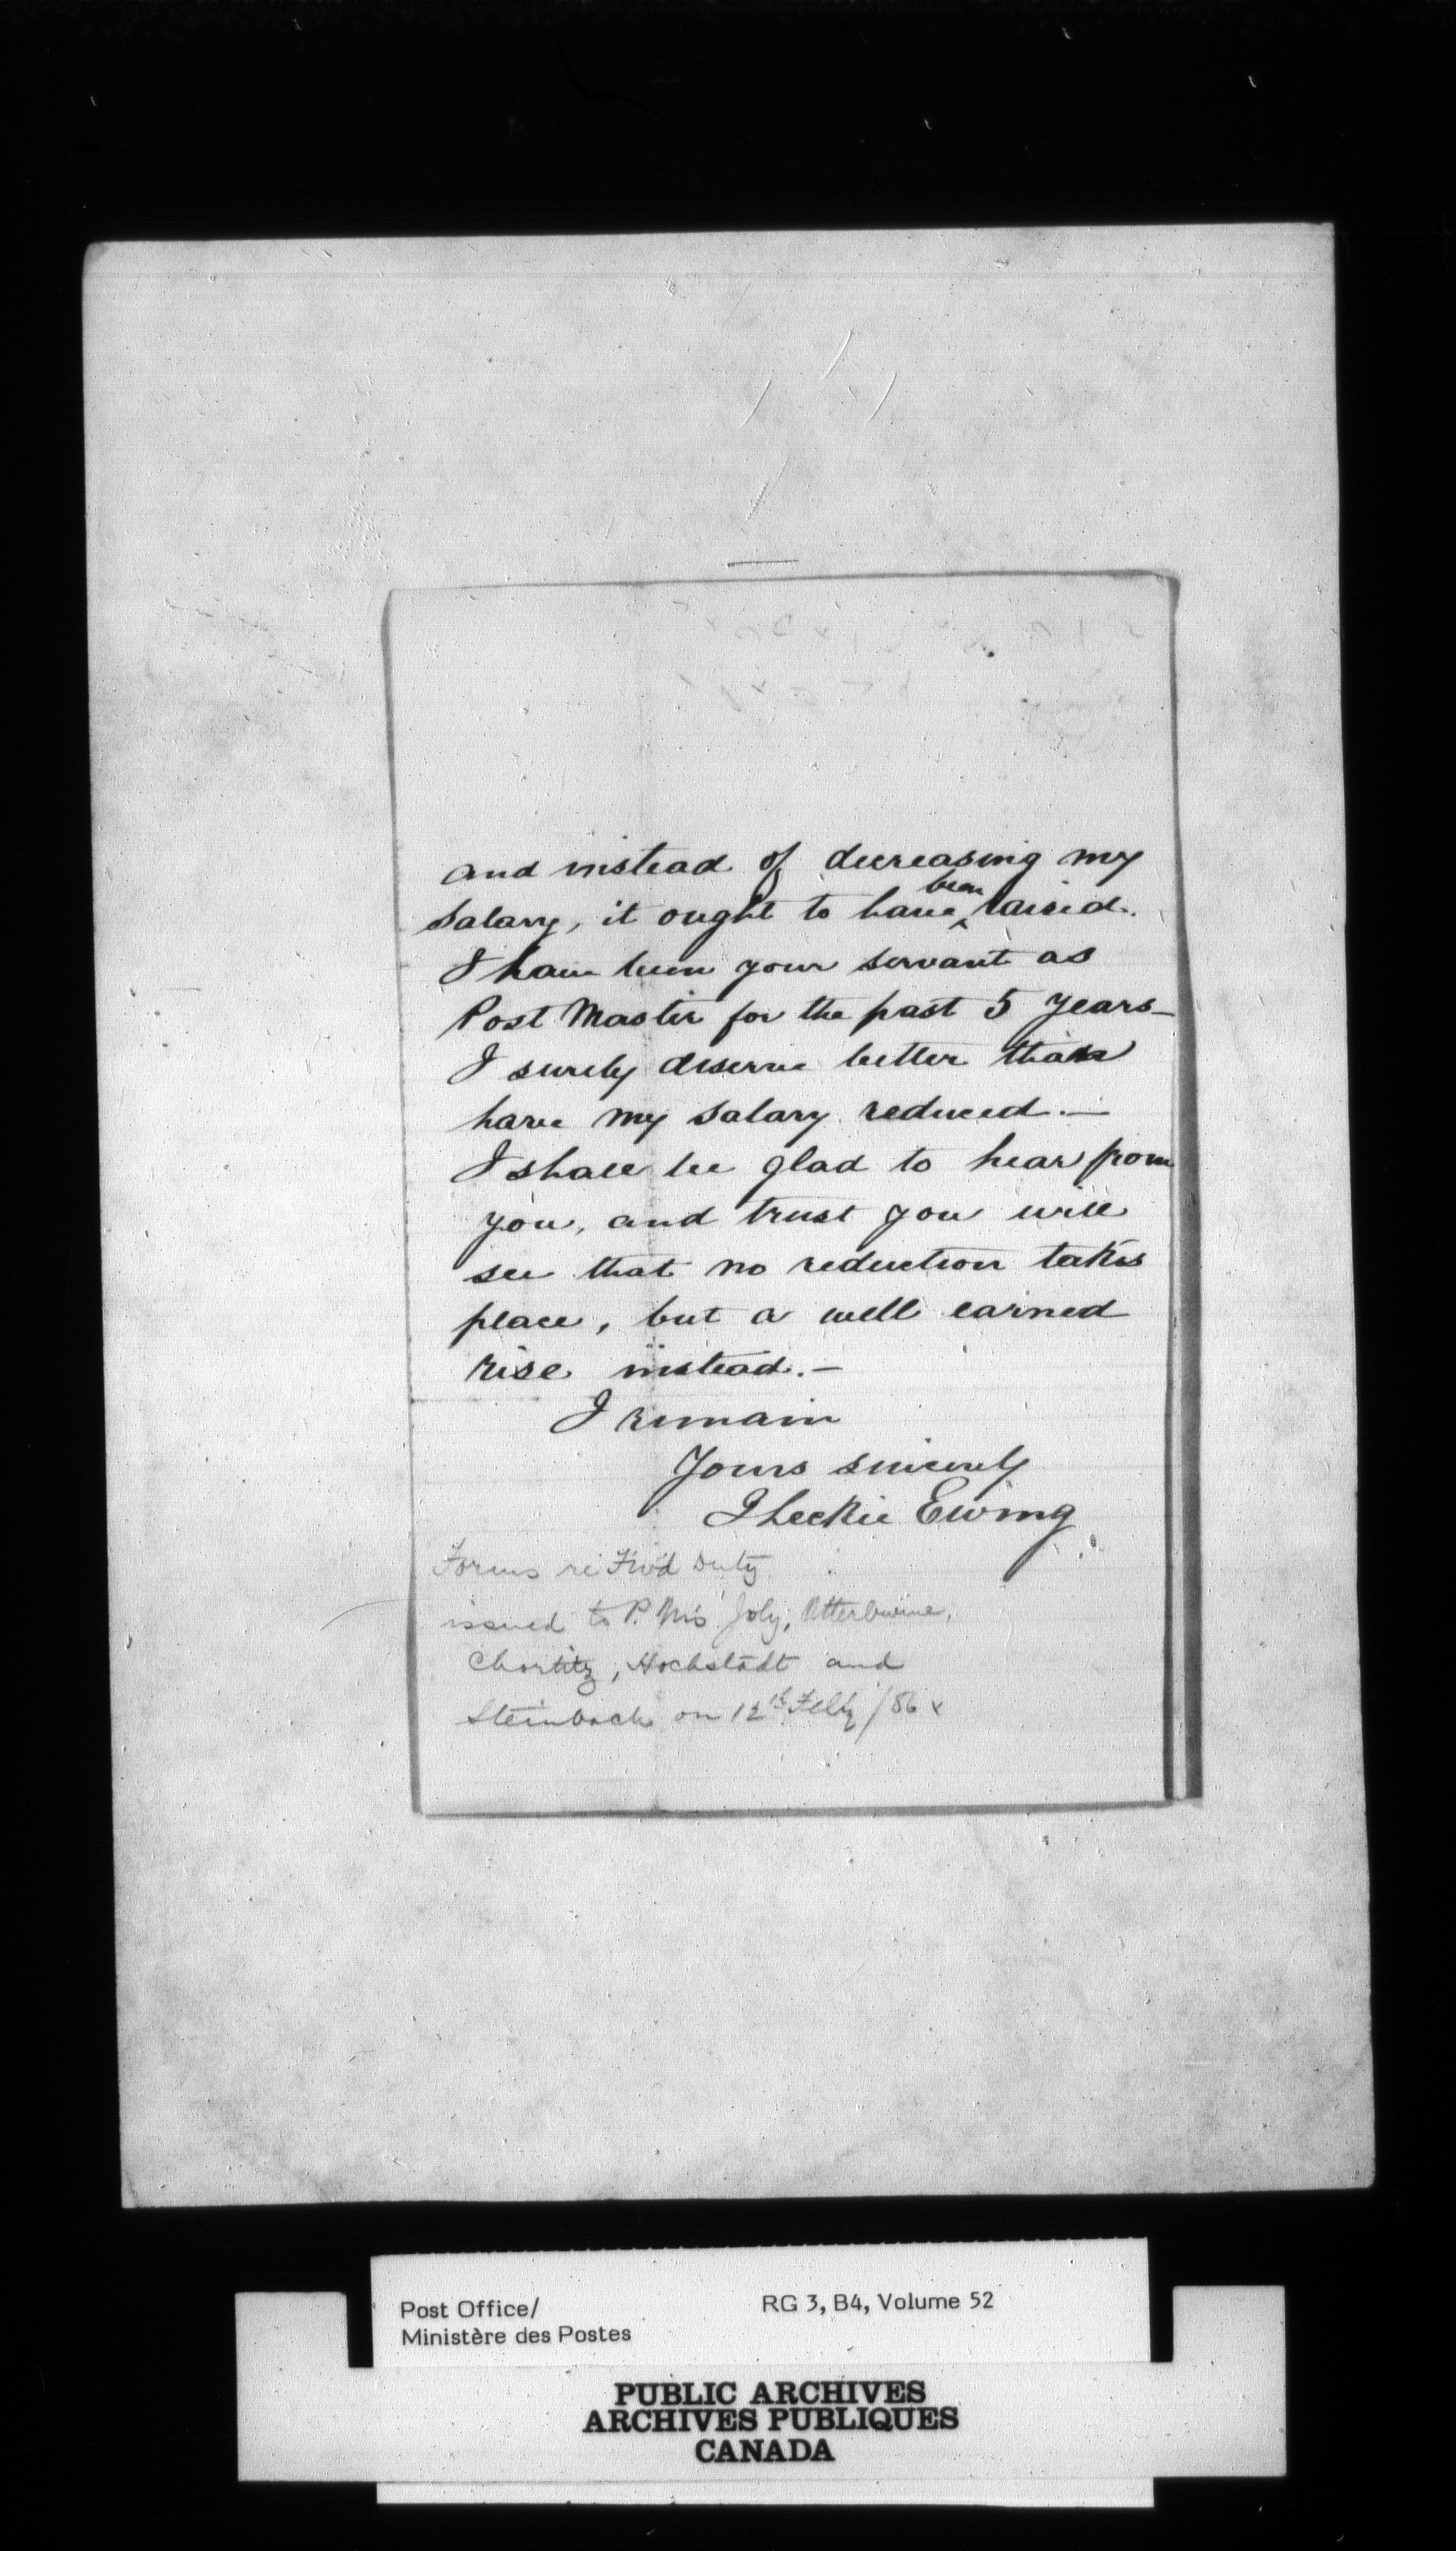 and instead of decreasing my
salary, it ought to have been raised.
I have been your servant as
Post Master for the past 5 years—
I surely deserve better than
have my salary reduced.—
I shall be glad to hear from
you, and trust you will
see that no reduction takes
place, but a well earned
rise instead.—
I remain
Yours sincerely
J Leckie Ewing
Forms re Fwd Duty
issued to P. Ms Joly, Otterburne,
Chortitz, Hochstadt and
Steinbach on 12th Feby /86 x
Post Office/
Ministère des Postes
RG 3, B4, Volume 52
PUBLIC ARCHIVES
ARCHIVES PUBLIQUES
CANADA